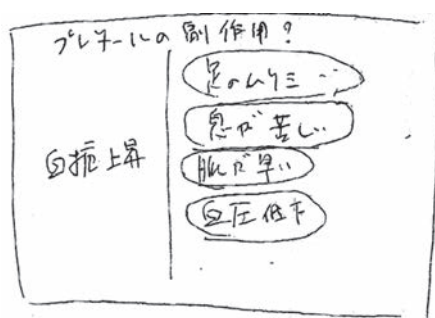 プレタールの副作用?
足のムクミ…
息が苦しい
脈が早い
血圧低下